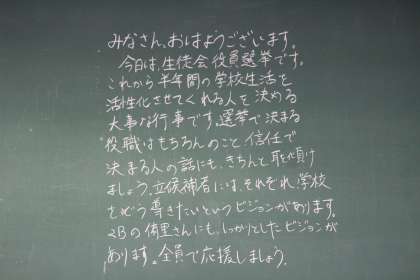 みなさん、おはようございます。
今日は、生徒会役員選挙です。
これから半年間の学校生活を
活性化させてくれる人を決める
大事な行事です。選挙で決まる
役職はもちろんのこと、信任で
決まる人の話にも、きちんと耳を傾け
ましょう。立候補者には、それぞれ、学校
をどう導きたいというビジョンがあります。
2Bの侑里さんにも、しっかりとしたビジョンが
あります。全員で応援しましょう。